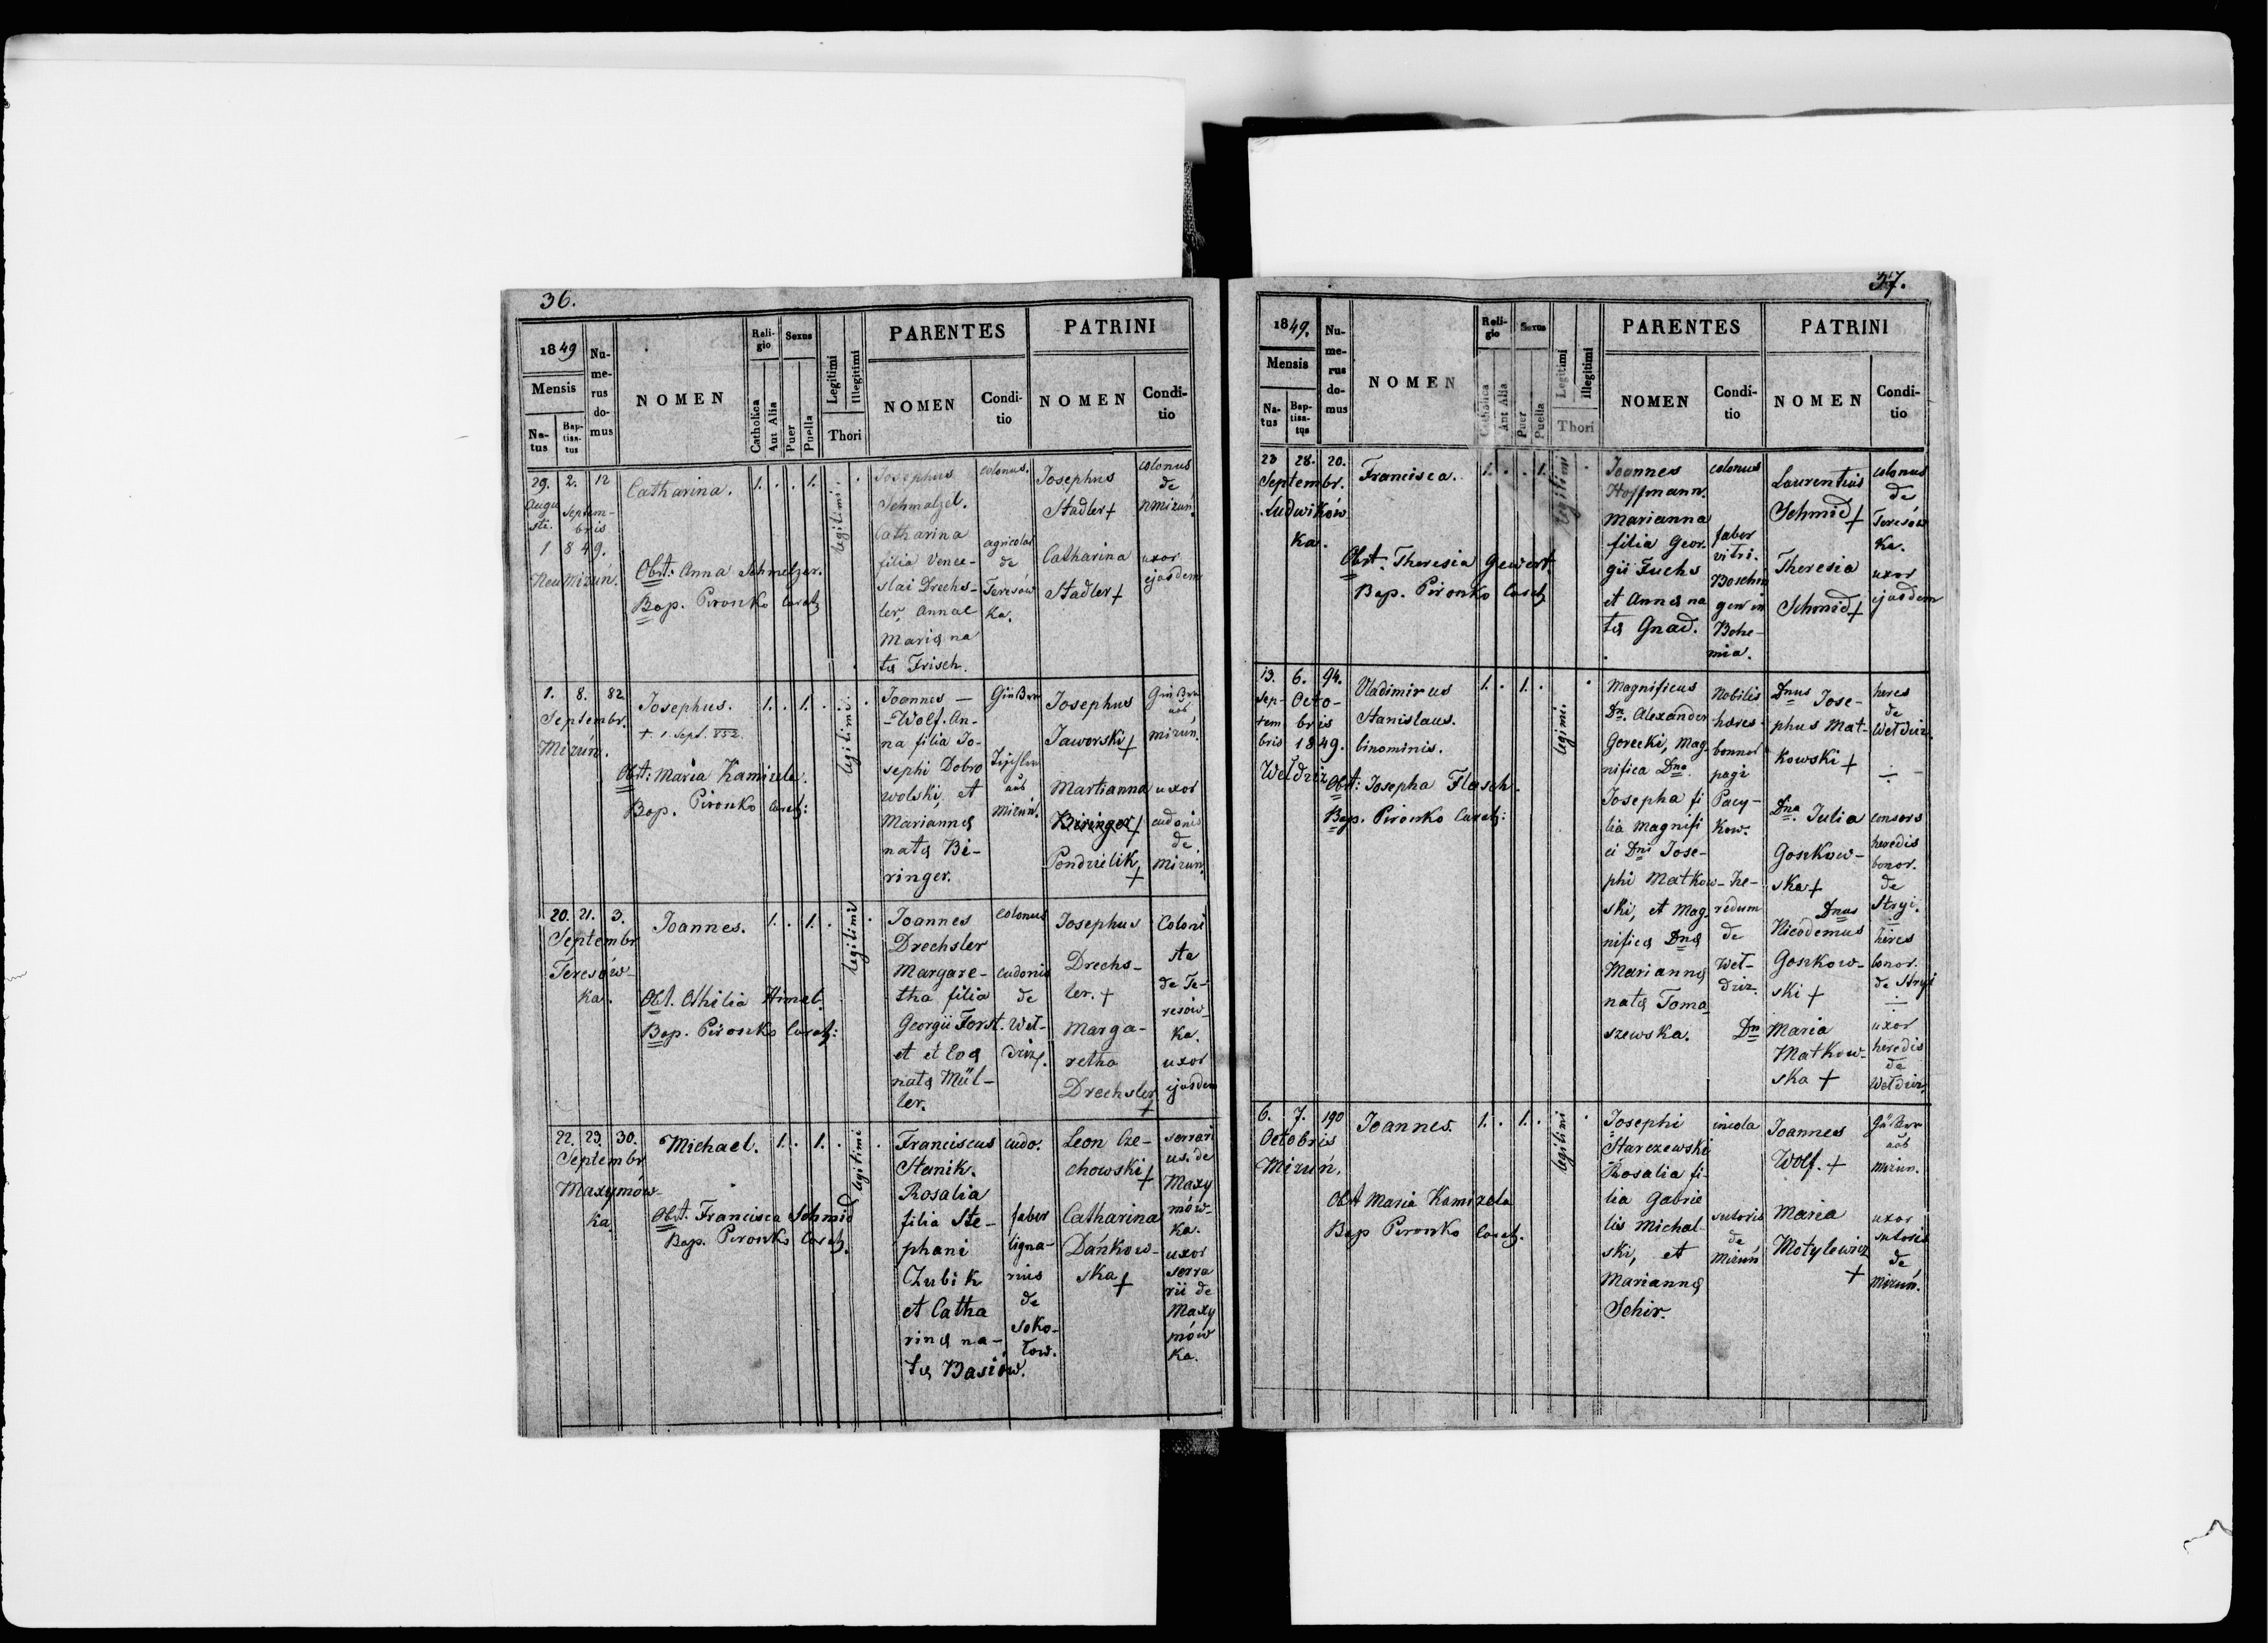 36.
1849
Mensis
Na-
tus
Bap-
tisa-
tus
Nu-
me-
rus
do-
mus
NOMEN
Reli-
gio
Catholica
Aut Alia
Sexus
Puer
Puella
Legitimi
Illegitimi
Thori
PARENTES
NOMEN
Condi-
tio
PATRINI
NOMEN
Condi-
tio
29. 2. 12
Augu
sti.
Septem-
bris
1849.
Neu Mizuń.
Catharina.
Obst: Anna Schmelzer.
Bap. Pironko Curat:
1. . . 1.
legitimi.
Josephus
Schmalzel.
Catharina
filia Vence-
slai Drechs-
ler, Annae
Maria na
ta Frisch.
colonus.
agricolae
de
Teresów
ka.
Josephus
Stadler +
Catharina
Stadler +
colonus
de
NMizuń.
uxor
ejusdem
1. 8. 82
Septembr.
Mizuń.
Josephus.
+. 1. Sept. 852.
Obst: Maria Kamizela.
Bap. Pironko Curat:
1. . 1. .
legitimi.
Joannes –
-Wolf. An-
na filia Jo-
sephi Dobro
wolski, et
Marianna
nata Bi-
ringer.
Mizuń.
Josephus
Jaworski +
Martianna
Biringer +
Pondzielik
+
Mizuń.
uxor
cudonis
de
Mizuń.
20. 21. 3.
Septembr
Teresów-
ka.
Joannes.
Obst. Othilia Himel.
Bap. Pironko Curat:
1. . 1. .
legitimi
Joannes
Drechsler
Margare-
tha filia
Georgii Forst.
et et Eva
nata Mül-
ler.
colonus
cudonis
de
Weł-
dziz.
Josephus
Drechs-
ler. +
Marga-
retha
Drechsler
+
Coloni
sta
de Te-
resów-
ka.
uxor
ejusdem
22. 23. 30.
Septembr
Maxymów-
ka.
Michael.
Obst. Francisca Schmid
Bap. Pironko Curat.
1. . 1. .
legitimi
Franciscus
Stanik.
Rosalia
filia Ste-
phani
Zubik
et Catha
rina na-
ta Basiów.
cudo.
faber
ligna-
rius
de
Soko-
łow.
Leon Cze-
chowski +
Catharina
Dańkow-
ska +
serrari
us. de
Maxy
mów-
ka.
uxor
serra
rii de
Maxy
mów
ka.
37.
1849.
Mensis
Na-
tus
Bap-
tisa-
tus
Nu-
me-
rus
do-
mus
NOMEN
Reli-
gio
Catholica
Aut Alia
Sexus
Puer
Puella
Legitimi
Illegitimi
Thori
PARENTES
NOMEN
Condi-
tio
PATRINI
NOMEN
Condi-
tio
23 28. 20.
Septembr.
Ludwików
ka.
Francisca.
Obst. Theresia Gewert.
Bap. Pironko Curat
1. . . 1.
legitimi
Joannes
Hoffmann.
Marianna
filia Geor-
gii Fuchs
et Anna na
ta Gnad.
colonus
faber
vitri.
Boschin
gen in
Bohe-
mia.
Laurentius
Schmid +
Theresia
Schmid +
colonus
de
Teresów
ka.
uxor
ejusdem
13. 6. 94.
Sep-
tem
bris
Octo-
bris
1849.
Wełdziz
Vladimirus
Stanislaus.
binominis.
Obst: Josepha Flasch.
Bap. Pironko Curat:
1. . 1. .
legimi.
Magnificus
Dn. Alexander
Gorecki, Mag-
nifica Dna
Josepha fi
lia Magnifi
ci Dni Jose-
phi Matkow-
ski, et Mag
nifica Dna
Marianna
nata Toma
szewska.
Nobilis
haeres
bonnor
pagi
Pacy-
kow.
he-
redum
de
Weł-
dziz.
Dnus Jose-
phus Mat-
kowski +
Dna. Julia
Goszkow-
ska +
Dnus
Nicodemus
Goszkow-
ski +
Dn Maria
Matkow-
ska +
heres
de
Wełdziz.
consors
heredis
bonor.
de
Stryi.
heres
bonor.
de Stryi
uxor
heredis
de
Wełdziz.
6. 7. 190
Octobris
Mizuń.
Joannes.
Obst Maria Kamizela
Bap Pironko Curat.
1. . 1. .
legitimi
Josephi
Starczewski
Rosalia fi-
lia Gabrie
lis Michal-
ski, et
Marianna
Schir.
incola
sutoris
de
Mizuń
Joannes
Wolf. +
Maria
Motylewicz
+
Mizun.
uxor
sutoris
de
Mizuń.